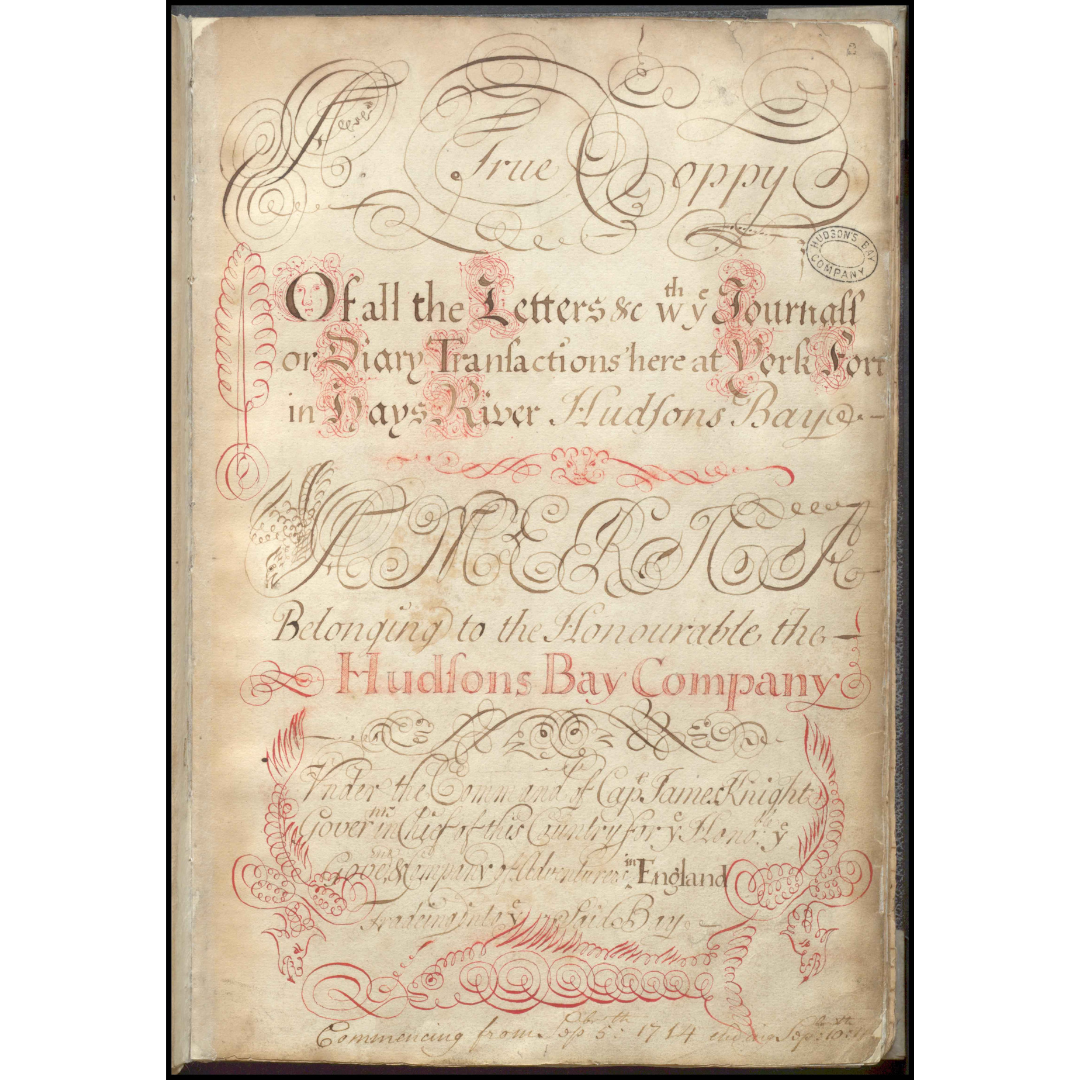 A True Coppy
2
HUDSON'S BAY COMPANY
Of all the Letters &c wth ye Journall
or Diary Transactions here at York Fort
in Hays River Hudsons Bay
AMERICA
Belonging to the Honourable the
Hudsons Bay Company
Under the Command of Capt James Knight
Governr in Chief of this Country for ye Honoble ye
Governr & Company of Adventurers in England
Tradeing into ye Bay
Commencing from Sepbr 5th 1714 ending Sepbr 10th